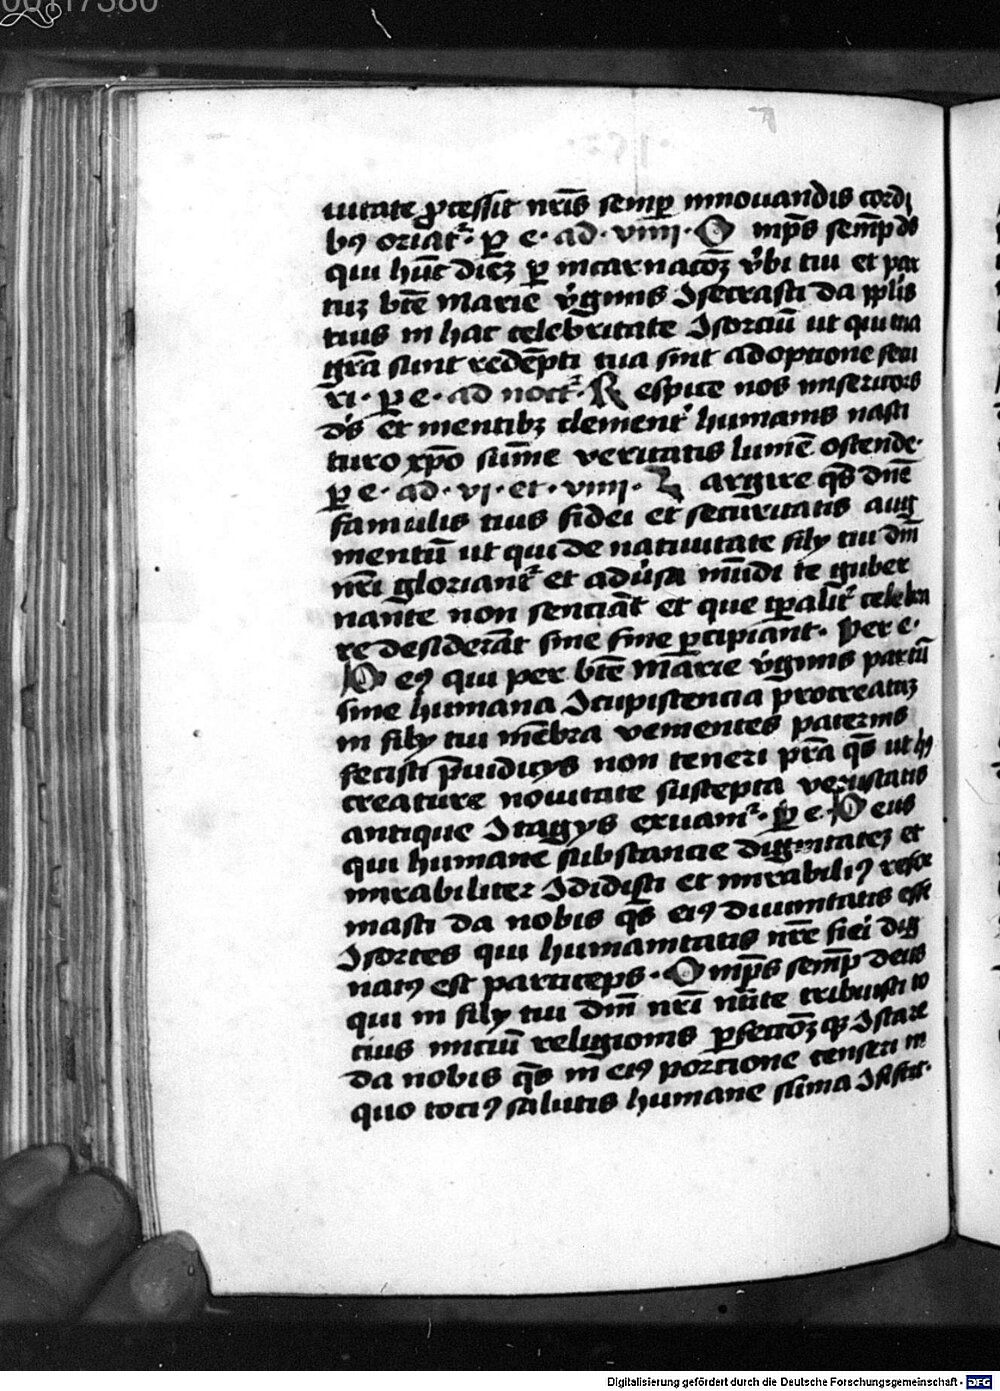 00117380
uitate ꝓcessit nr̄is semꝑ innouandis cordi
bꝯ oriat᷑· ꝑ e· ad· viiii· O mp̄s semp̄ ds̄
qui hūc diēʒ ꝑ incarnacōʒ v̄bi tui et par
tuʒ btē marie v̄ginis Ↄsecrasti da pplīs
tuis in hac celebritate Ↄsorciū ut qui tua
grā sunt redēpti tua sint adoptione secu
ri· ꝑ e· ad noct᷑· R espice nos misericors
ds̄ et mentibʒ clement᷑ humanis nasci
turo xp̄o sūme veritatis lumē ostende·
ꝑ e· ad· vi· et· viiii· L argire qs̄ dnē
famulis tuis fidei et securitatis aug
mentū ut qui de natiuitate filij tui dn̄i
nr̄i gloriant᷑ et aduˀsa mūdi te guber
nante non senciāt et que tp̄alit᷑ celebra
re desiderāt sine fine ꝑcipiant· Per e·
D eꝯ qui per btē marie v̄ginis partū
sine humana Ↄcupiscencia procreatuʒ
in filij tui mēbra venientes paternis
fecisti p̄iudicijs non teneri prā qs̄ ut hꝯ
creature nouitate suscepta vetustatis
antique Ↄtagijs exuam᷑· ꝑ e· D eus
qui humane substancie dignitateʒ et
mirabiliter Ↄdidisti et mirabiliꝯ refor
masti da nobis qs̄ eiꝯ diuinitatis esse
Ↄsortes qui humanitatis nr̄e fieri dig
natꝯ est particeps· O mp̄s semp̄ deus
qui in filij tui dn̄i nr̄i nītate tribuisti to
cius iniciū religionis ꝑfectōʒ qꝫ Ↄstare
da nobis qs̄ in eiꝯ porcione censeri in
quo tociꝯ salutis humane sūma Ↄsistit·
Digitalisierung gefördert durch die Deutsche Forschungsgemeinschaft - DFG